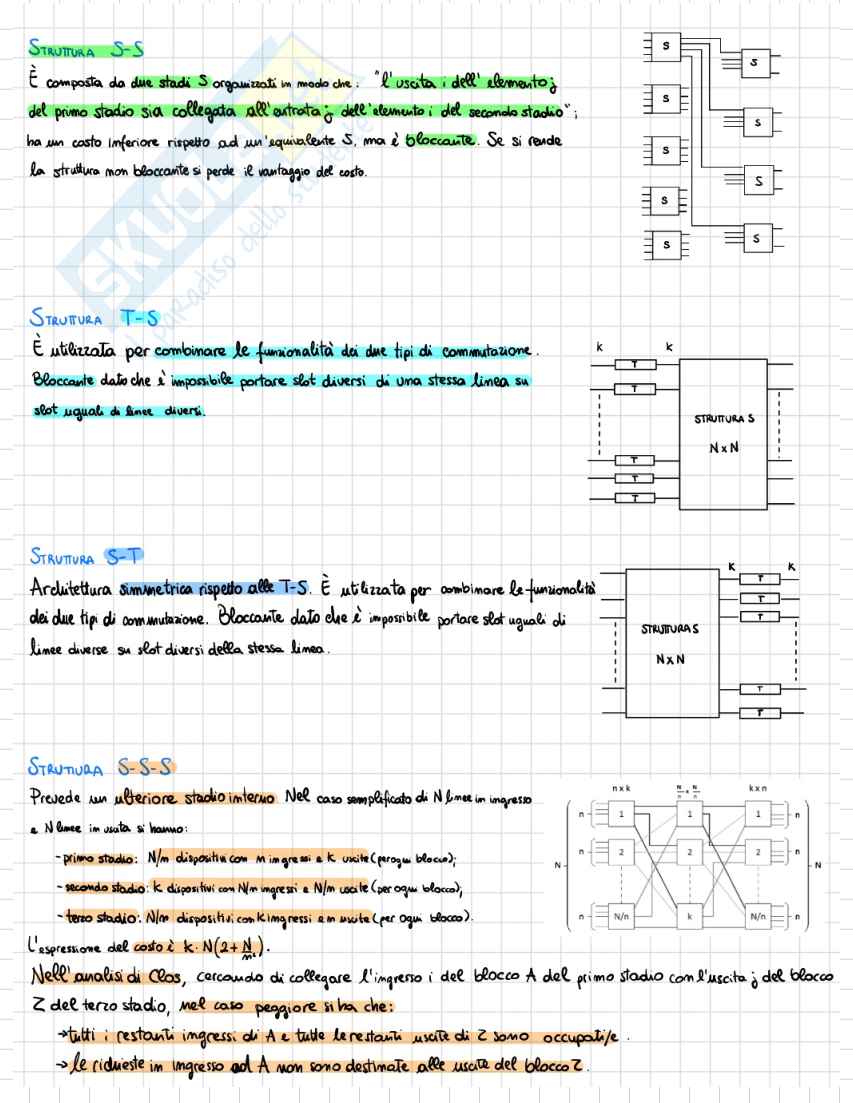 STRUTTURA S-S
È composta da due stadi S organizzati in modo che: "l'uscita i dell'elemento j
del primo stadio sia collegata all'entrata j dell'elemento i del secondo stadio";
ha un costo inferiore rispetto ad un'equivalente S, ma è bloccante. Se si rende
la struttura non bloccante si perde il vantaggio del costo.
S
S
S
S
S
S
S
S
S
SKUOLA
il paradiso dello studente
STRUTTURA T-S
È utilizzata per combinare le funzionalità dei due tipi di commutazione.
Bloccante dato che è impossibile portare slot diversi di una stessa linea su
slot uguali di linee diversi.
K K
T
T
STRUTTURA S
N x N
T
T
T
STRUTTURA S-T
Architettura simmetrica rispetto alle T-S. È utilizzata per combinare le funzionalità
dei due tipi di commutazione. Bloccante dato che è impossibile portare slot uguali di
linee diverse su slot diversi della stessa linea.
K K
T
T
T
STRUTTURA S
N x N
T
T
STRUTTURA S-S-S
Prevede un ulteriore stadio interno. Nel caso semplificato di N linee in ingresso
e N linee in uscita si hanno:
- primo stadio: N/n dispositivi con n ingressi e k uscite (per ogni blocco);
- secondo stadio: k dispositivi con N/n ingressi e N/n uscite (per ogni blocco);
- terzo stadio: N/n dispositivi con k ingressi e n uscite (per ogni blocco).
L'espressione del costo è k · N(2 + N/n²).
n x k N/n x N/n k x n
n 1 1 1 n
n 2 2 2 n
N N
n N/n k N/n n
Nell'analisi di Clos, cercando di collegare l'ingresso i del blocco A del primo stadio con l'uscita j del blocco
Z del terzo stadio, nel caso peggiore si ha che:
→ tutti i restanti ingressi di A e tutte le restanti uscite di Z sono occupati/e.
→ le richieste in ingresso ad A non sono destinate alle uscite del blocco Z.